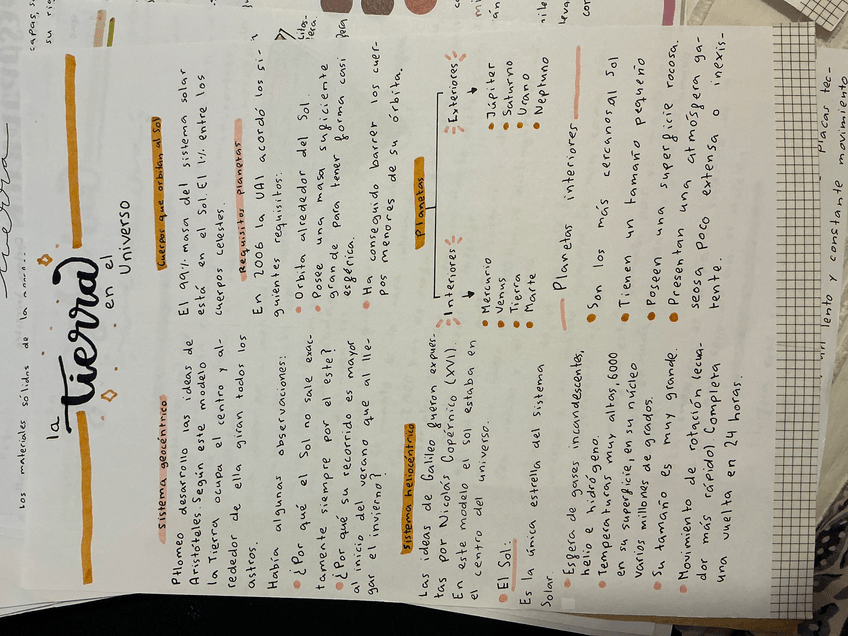 Los materiales sólidos de la
la
tierra
en el
Universo
Sistema geocéntrico
Ptlomeo desarrollo las ideas de
Aristóteles. Según este modelo
la Tierra ocupa el centro y al-
rededor de ella giran todos los
astros.
Había algunas observaciones:
• ¿Por qué el Sol no sale exac-
tamente siempre por el este?
• ¿Por qué su recorrido es mayor
al inicio del verano que al lle-
gar el invierno?
Sistema heliocéntrico
Las ideas de Galileo fueron expues-
tas por Nicolás Copérnico (XVI).
En este modelo el Sol estaba en
el centro del universo.
• El Sol:
Es la única estrella del Sistema
Solar.
• Esfera de gases incandescentes,
helio e hidrógeno.
• Temperaturas muy altas, 6000
en su superficie, en su núcleo
varios millones de grados.
• Su tamaño es muy grande.
• Movimiento de rotación (ecua-
dor más rápido) Completa
una vuelta en 24 horas.
Cuerpos que orbitan al Sol
El 99% masa del sistema solar
está en el Sol. El 1% entre los
cuerpos celestes.
Requisitos planetas
En 2006 la UAI acordó los si-
guientes requisitos:
• Orbita alrededor del Sol.
• Posee una masa suficiente
grande para tener forma casi
esférica.
• Ha conseguido barrer los cuer-
pos menores de su órbita.
Planetas
Interiores
• Mercurio
• Venus
• Tierra
• Marte
Exteriores
• Júpiter
• Saturno
• Urano
• Neptuno
Planetas interiores
• Son los más cercanos al Sol
• Tienen un tamaño pequeño
• Poseen una superficie rocosa.
• Presentan una atmósfera ga-
seosa poco extensa o inexis-
tente.
capas, s
su
placas tec-
lento y constante movimiento